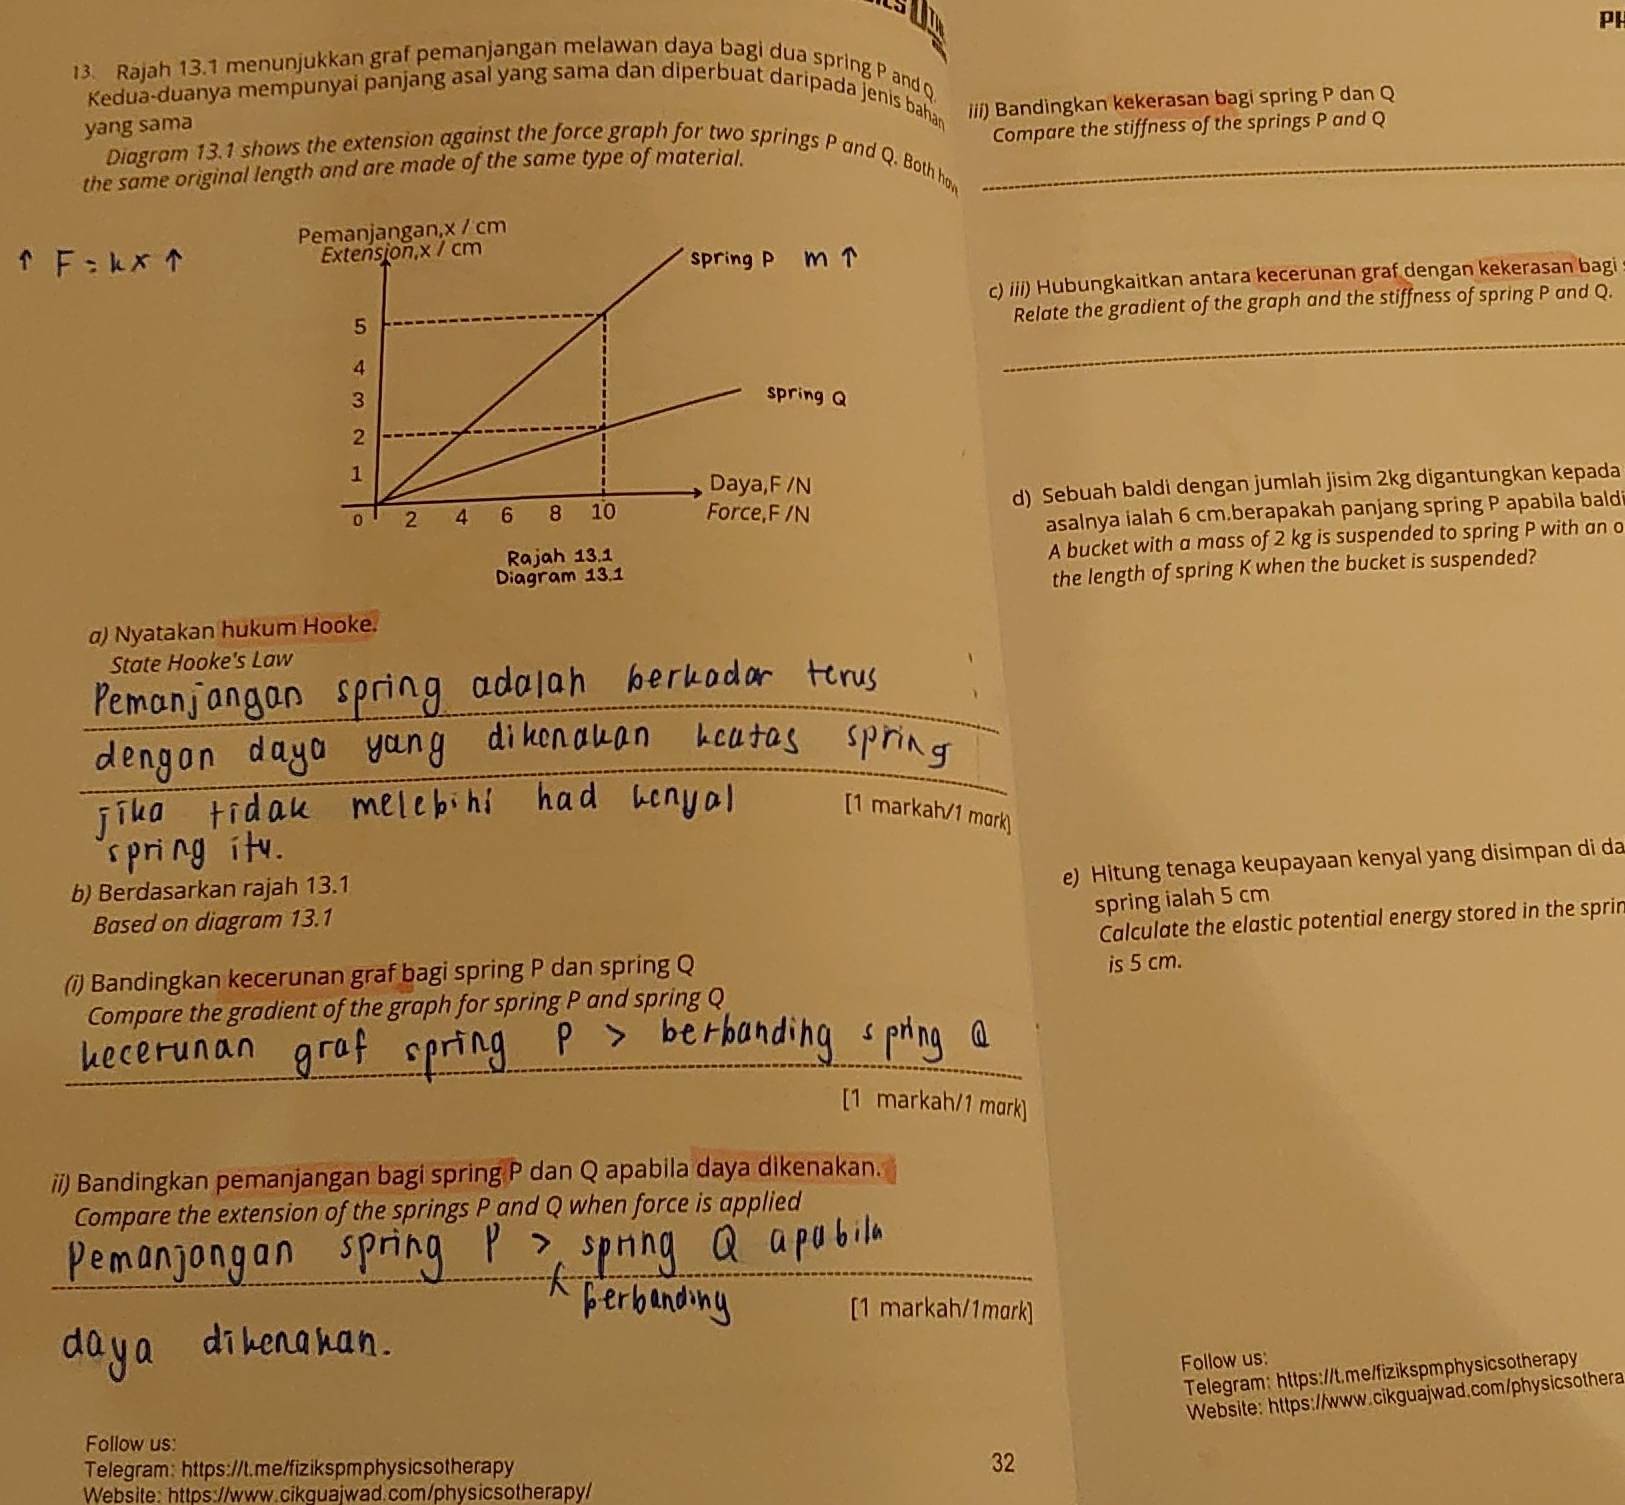 PH
13. Rajah 13.1 menunjukkan graf pemanjangan melawan daya bagi dua spring P and Q.
Kedua-duanya mempunyai panjang asal yang sama dan diperbuat daripada jenis bahan
yang sama
Diagram 13.1 shows the extension against the force graph for two springs P and Q. Both hav
the same original length and are made of the same type of material.
↑ F = kx ↑
Pemanjangan,x / cm
Extension,x / cm
spring P m ↑
5
4
3
2
1
spring Q
Daya,F /N
Force,F /N
0 2 4 6 8 10
Rajah 13.1
Diagram 13.1
a) Nyatakan hukum Hooke.
State Hooke's Law
Pemanjangan spring adalah berkadar terus
dengan daya yang dikenakan keatas spring
jika tidak melebihi had kenyal
spring itu.
[1 markah/1 mark]
b) Berdasarkan rajah 13.1
Based on diagram 13.1
(i) Bandingkan kecerunan graf bagi spring P dan spring Q
Compare the gradient of the graph for spring P and spring Q
kecerunan graf spring P > berbanding spring Q
[1 markah/1 mark]
ii) Bandingkan pemanjangan bagi spring P dan Q apabila daya dikenakan.
Compare the extension of the springs P and Q when force is applied
Pemanjangan spring P > spring Q apabila
berbanding
[1 markah/1mark]
daya dikenakan.
Follow us:
Telegram: https://t.me/fizikspmphysicsotherapy
Website: https://www.cikguajwad.com/physicsotherapy/
32
iii) Bandingkan kekerasan bagi spring P dan Q
Compare the stiffness of the springs P and Q
c) iii) Hubungkaitkan antara kecerunan graf dengan kekerasan bagi
Relate the gradient of the graph and the stiffness of spring P and Q.
d) Sebuah baldi dengan jumlah jisim 2kg digantungkan kepada
asalnya ialah 6 cm.berapakah panjang spring P apabila baldi
A bucket with a mass of 2 kg is suspended to spring P with an o
the length of spring K when the bucket is suspended?
e) Hitung tenaga keupayaan kenyal yang disimpan di da
spring ialah 5 cm
Calculate the elastic potential energy stored in the sprin
is 5 cm.
Follow us:
Telegram: https://t.me/fizikspmphysicsotherapy
Website: https://www.cikguajwad.com/physicsothera